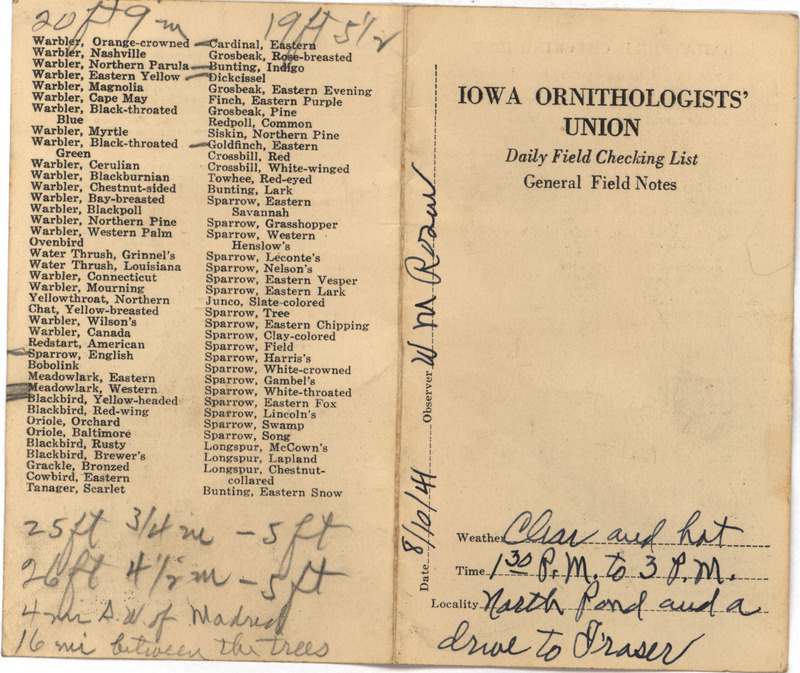 20 ft 9 in 19 ft 5 1/2
Warbler, Orange-crowned
Warbler, Nashville
Warbler, Northern Parula
Warbler, Eastern Yellow
Warbler, Magnolia
Warbler, Cape May
Warbler, Black-throated
Blue
Warbler, Myrtle
Warbler, Black-throated
Green
Warbler, Cerulian
Warbler, Blackburnian
Warbler, Chestnut-sided
Warbler, Bay-breasted
Warbler, Blackpoll
Warbler, Northern Pine
Warbler, Western Palm
Ovenbird
Water Thrush, Grinnel's
Water Thrush, Louisiana
Warbler, Connecticut
Warbler, Mourning
Yellowthroat, Northern
Chat, Yellow-breasted
Warbler, Wilson's
Warbler, Canada
Redstart, American
Sparrow, English
Bobolink
Meadowlark, Eastern
Meadowlark, Western
Blackbird, Yellow-headed
Blackbird, Red-wing
Oriole, Orchard
Oriole, Baltimore
Blackbird, Rusty
Blackbird, Brewer's
Grackle, Bronzed
Cowbird, Eastern
Tanager, Scarlet
Cardinal, Eastern
Grosbeak, Rose-breasted
Bunting, Indigo
Dickcissel
Grosbeak, Eastern Evening
Finch, Eastern Purple
Grosbeak, Pine
Redpoll, Common
Siskin, Northern Pine
Goldfinch, Eastern
Crossbill, Red
Crossbill, White-winged
Towhee, Red-eyed
Bunting, Lark
Sparrow, Eastern
Savannah
Sparrow, Grasshopper
Sparrow, Western
Henslow's
Sparrow, Leconte's
Sparrow, Nelson's
Sparrow, Eastern Vesper
Sparrow, Eastern Lark
Junco, Slate-colored
Sparrow, Tree
Sparrow, Eastern Chipping
Sparrow, Clay-colored
Sparrow, Field
Sparrow, Harris's
Sparrow, White-crowned
Sparrow, Gambel's
Sparrow, White-throated
Sparrow, Eastern Fox
Sparrow, Lincoln's
Sparrow, Swamp
Sparrow, Song
Longspur, McCown's
Longspur, Lapland
Longspur, Chestnut-
collared
Bunting, Eastern Snow
25 ft 3/4 in - 5 ft
26 ft 4 1/2 in - 5 ft
4 mi S.W. of Madrid
16 mi between the trees
Date 8/10/41 Observer W M Rosen
IOWA ORNITHOLOGISTS'
UNION
Daily Field Checking List
General Field Notes
Weather Clear and hot
Time 1 30 P.M. to 3 P.M.
Locality North Pond and a
drive to Fraser